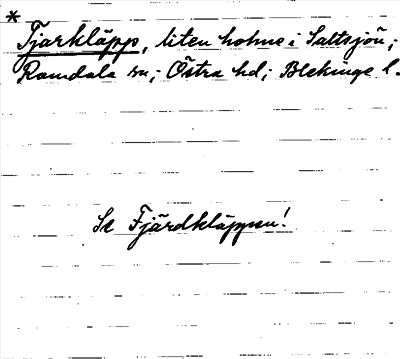 *
Tjarkläpp, liten holme i Saltsjön;
Ramdala sn; Östra hd; Blekinge l.
Se Fjärdkläppen!